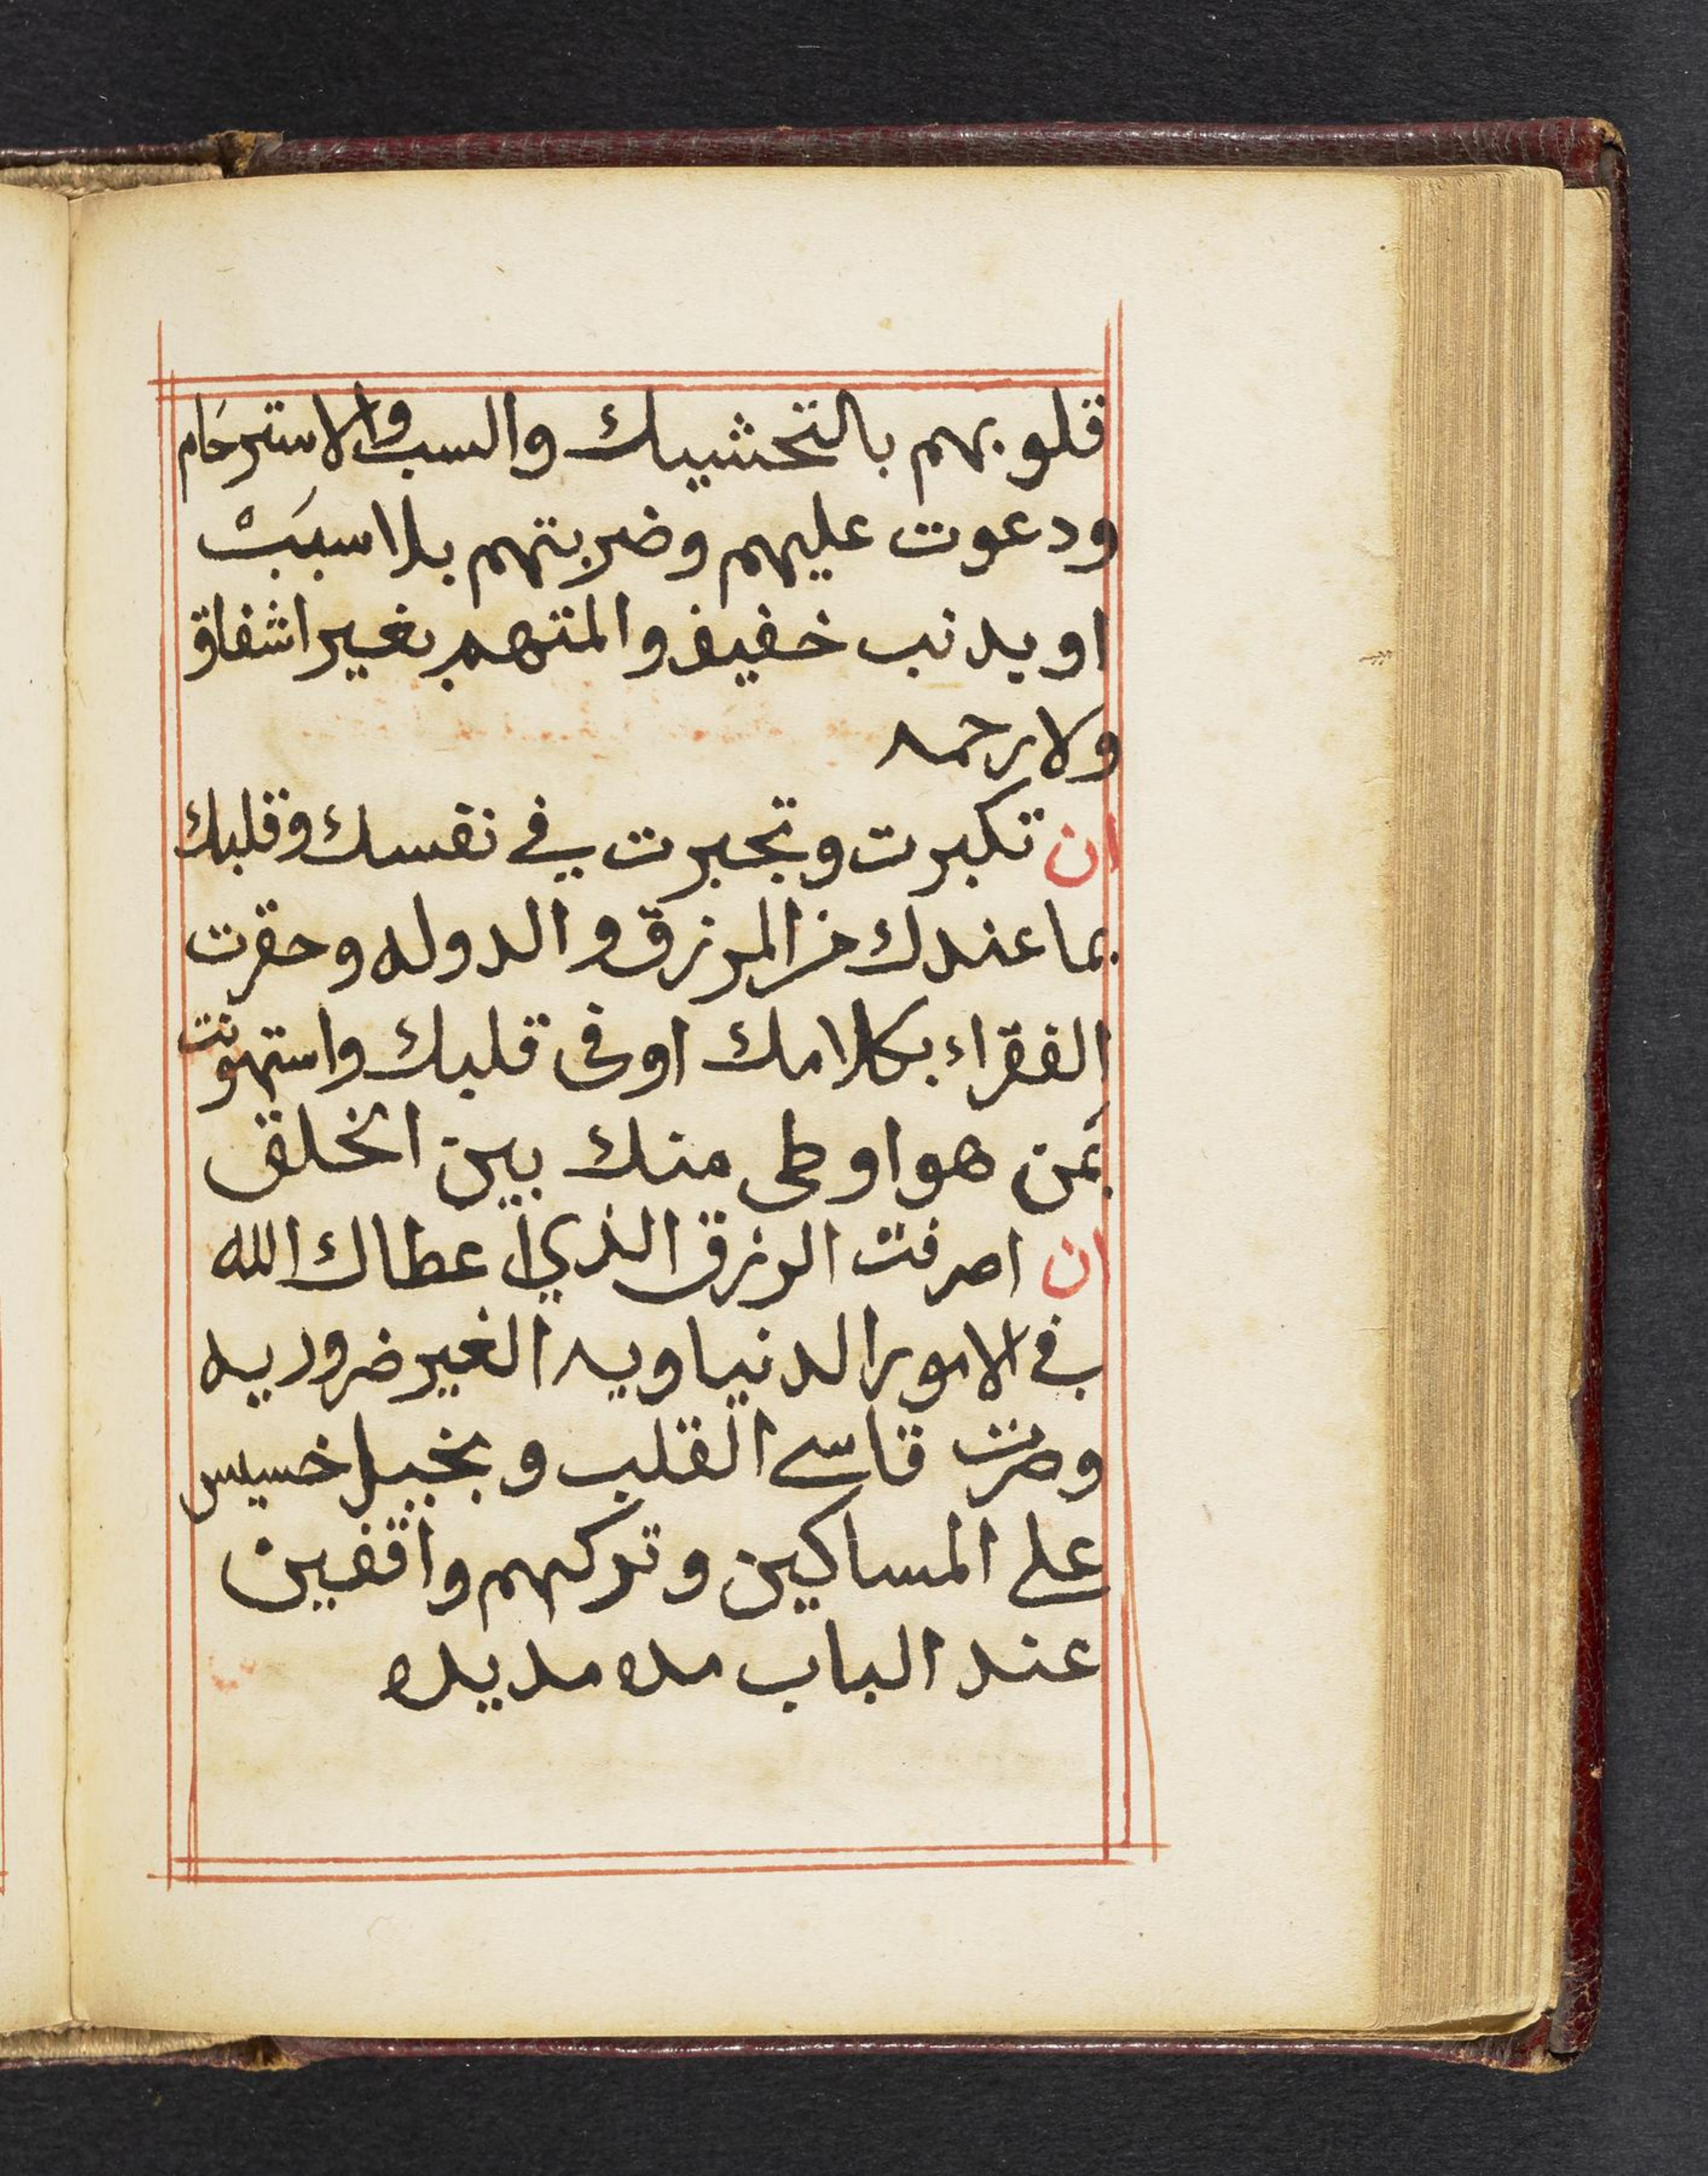 قلوبهم بالتخشيك والسب والاسترحَام
ودعوت عليهم وضربتهم بلا سببَبْ
او بدنب خفيف والمتهم بغير اشفاق
ولا رحمه
ان تكبرت وتجبرت في نفسك وقلبك
بما عندك من الرزق والدوله وحقرت
الفقراء بكلامك او في قلبك واستهونت
بمَن هو اوطى منك بين الخلق
ان اصرفت الرزق الذي اعطاك الله
في الامور الدنياويه الغير ضروريه
وصرت قاسي القلب وبخيل خسيس
على المساكين وتركهم واقفين
عند الباب مده مديده